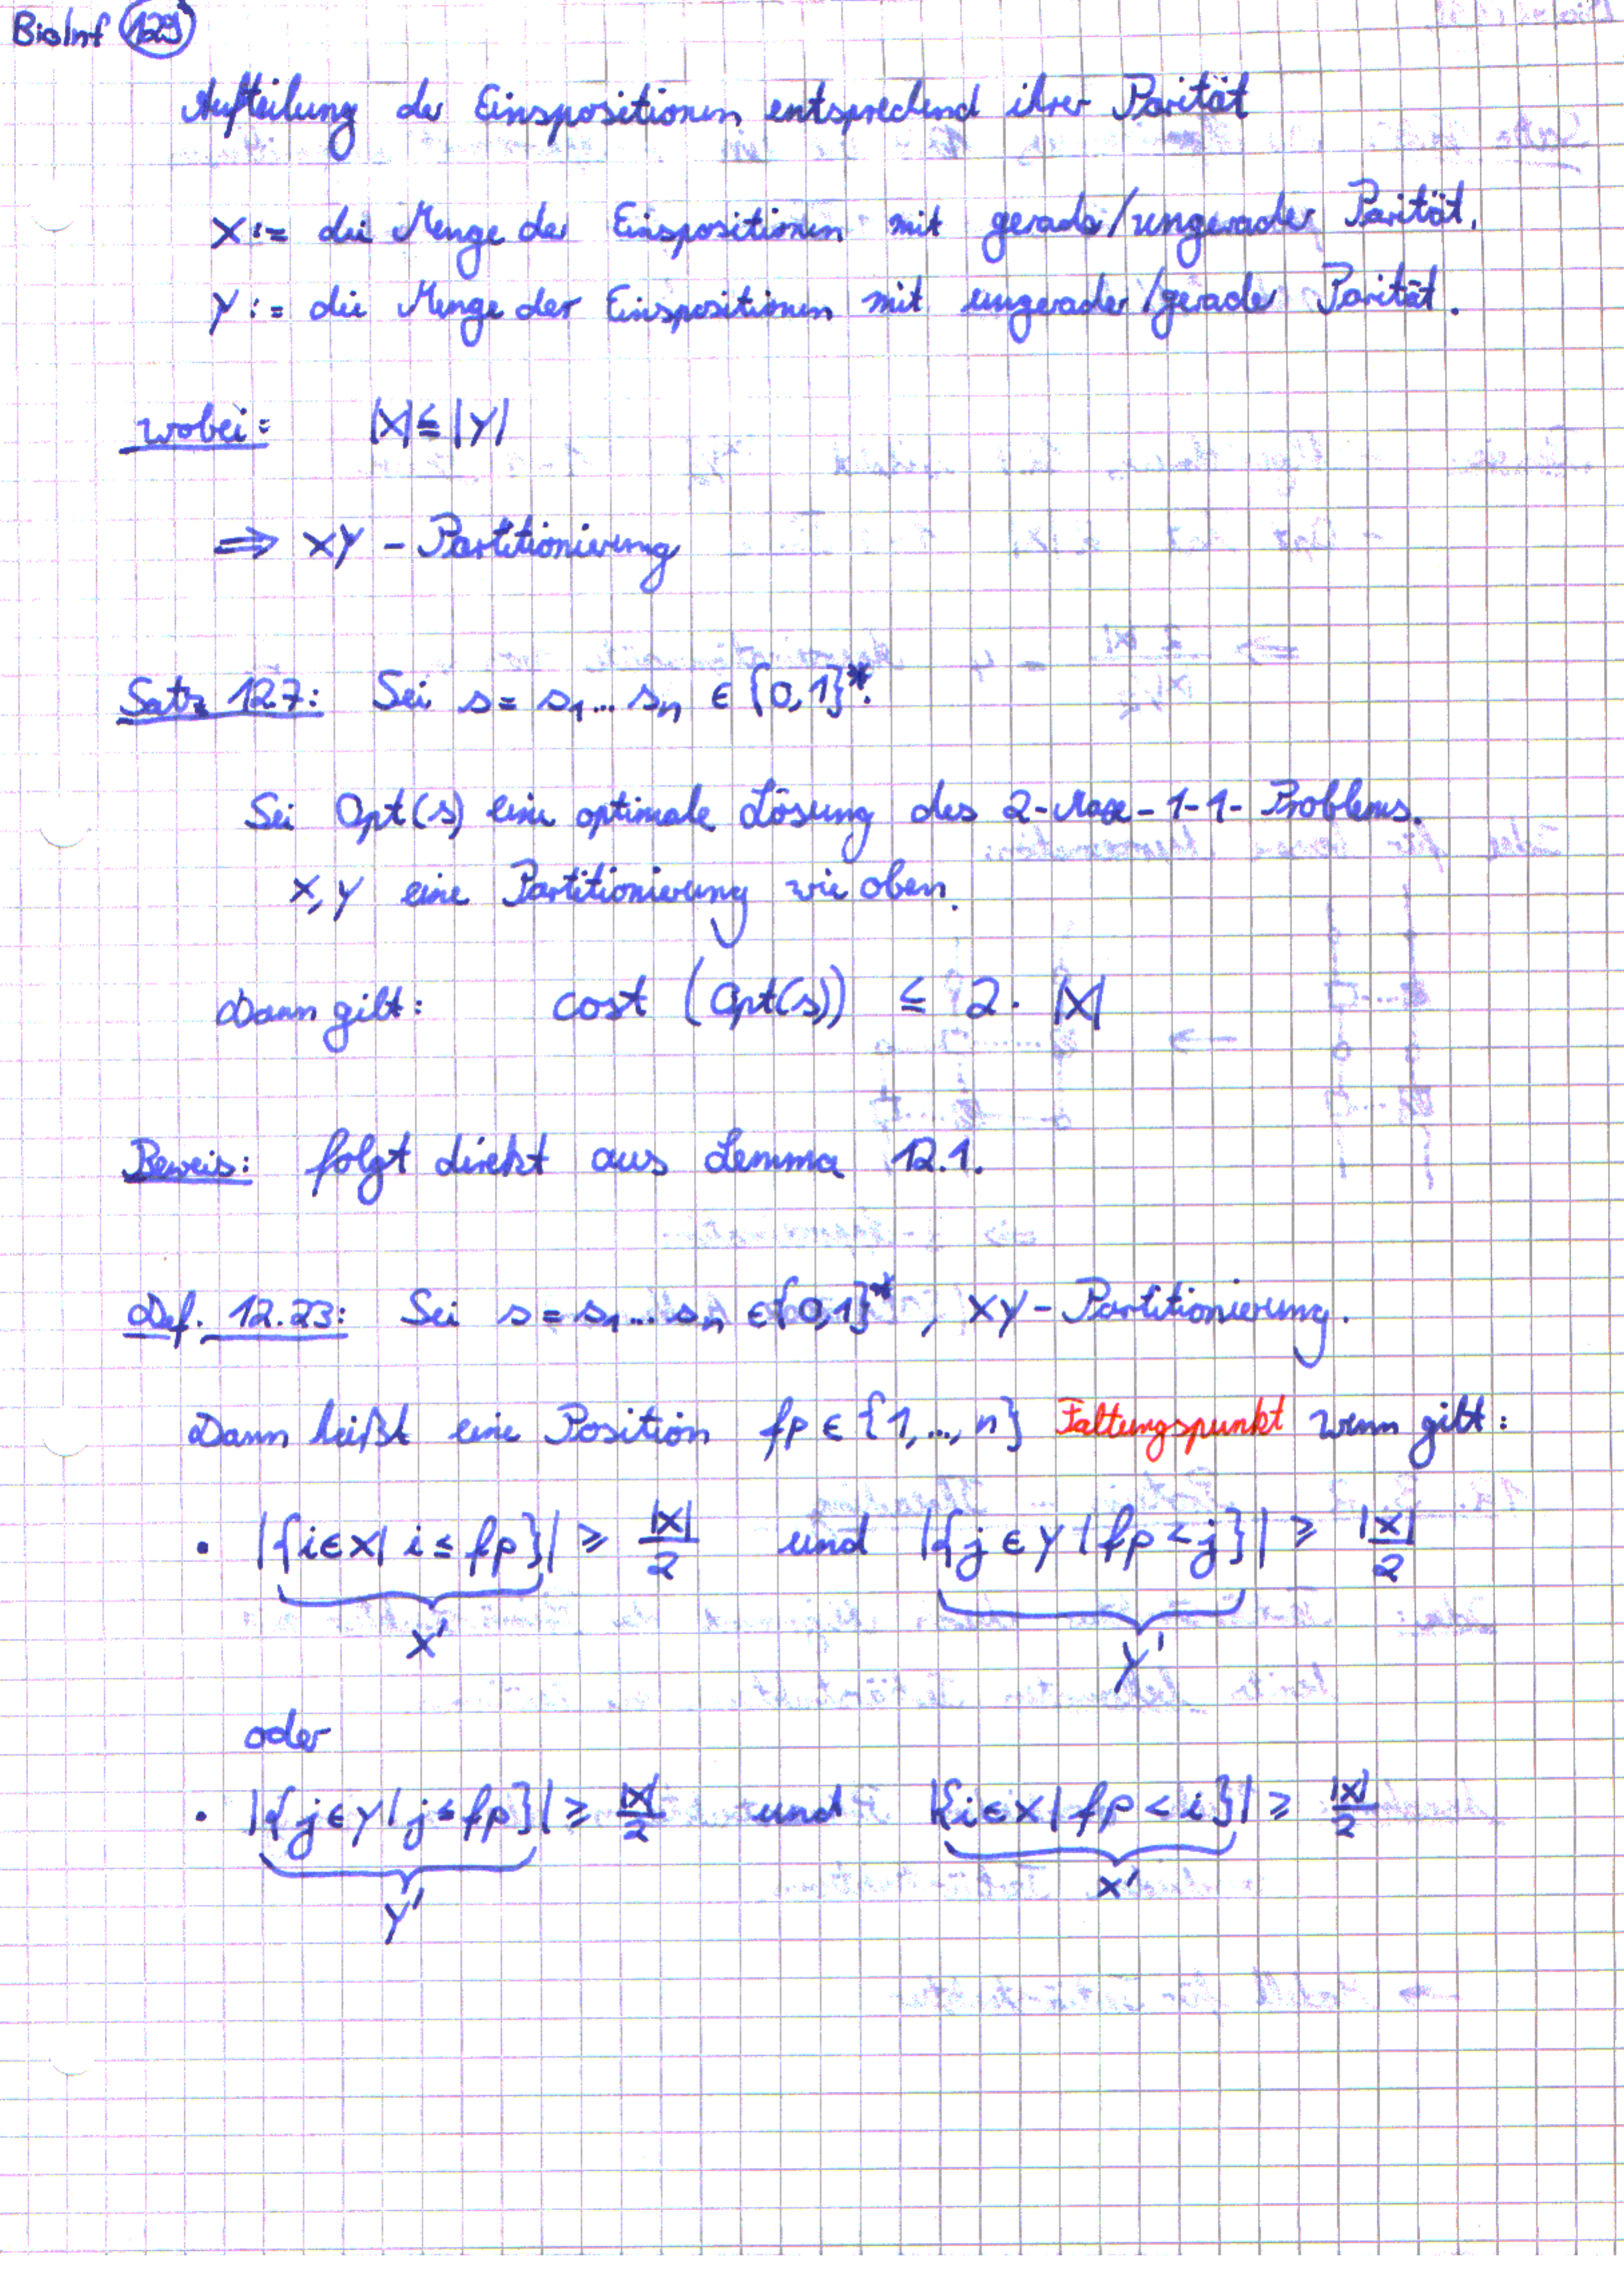 BioInf 129
Aufteilung der Einspositionen entsprechend ihrer Parität
X := die Menge der Einspositionen mit gerader/ungerader Parität.
Y := die Menge der Einspositionen mit ungerader/gerader Parität.
wobei: |X| ≤ |Y|
⇒ XY - Partitionierung
Satz 12.7: Sei s = s₁...sₙ ∈ {0,1}*.
Sei Opt(s) eine optimale Lösung des 2-Max-1-1-Problems.
X, Y eine Partitionierung wie oben.
Dann gilt: cost (Opt(s)) ≤ 2 · |X|
Beweis: folgt direkt aus Lemma 12.1.
Def. 12.23: Sei s = s₁...sₙ ∈ {0,1}*, XY - Partitionierung.
Dann heißt eine Position fp ∈ {1,...,n} Faltungspunkt wenn gilt:
• |{i ∈ X | i ≤ fp}| ≥ |X|/2 und |{j ∈ Y | fp < j}| ≥ |X|/2
X' Y'
oder
• |{j ∈ Y | j ≤ fp}| ≥ |X|/2 und |{i ∈ X | fp < i}| ≥ |X|/2
Y' X'